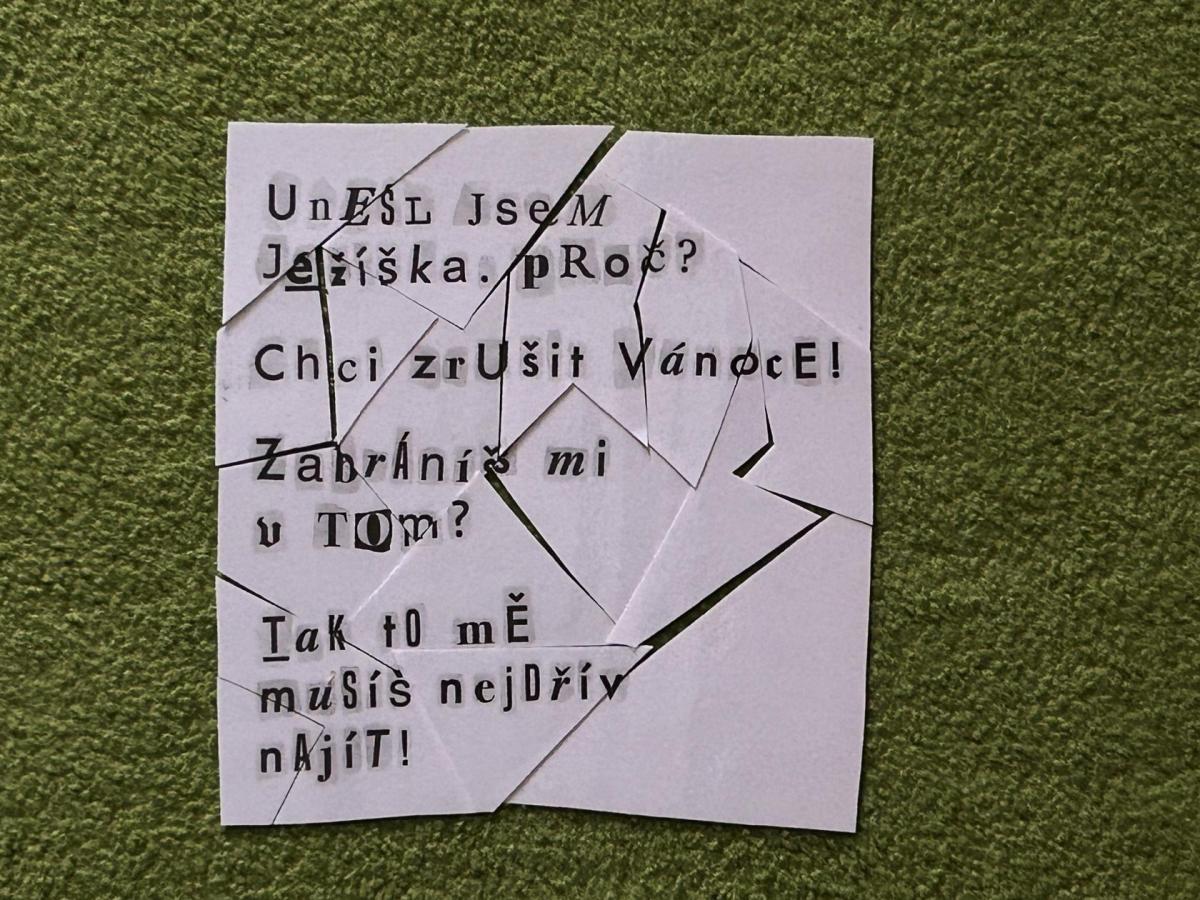 UnESL JseM
Ježíška. pRoč?
Chci zrUšit VánocE!
ZabrÁníš mi
v TOm?
TaK tO mĚ
muSíš nejDřív
nAjíT!